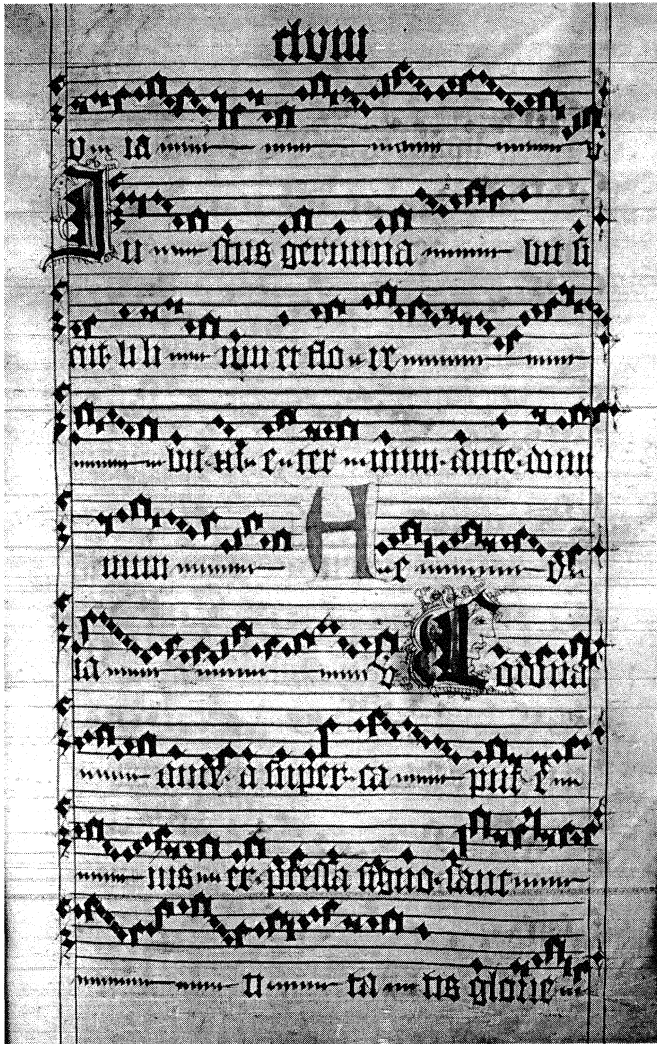 clviii
v ia v
Iu stus germina bit si
cut lili um et flo re
bit in e ter num ante domi
num A e vi
ia v Corona
aure a super ca put e
ius ex pressa signo sanc
ti ta tis glorie